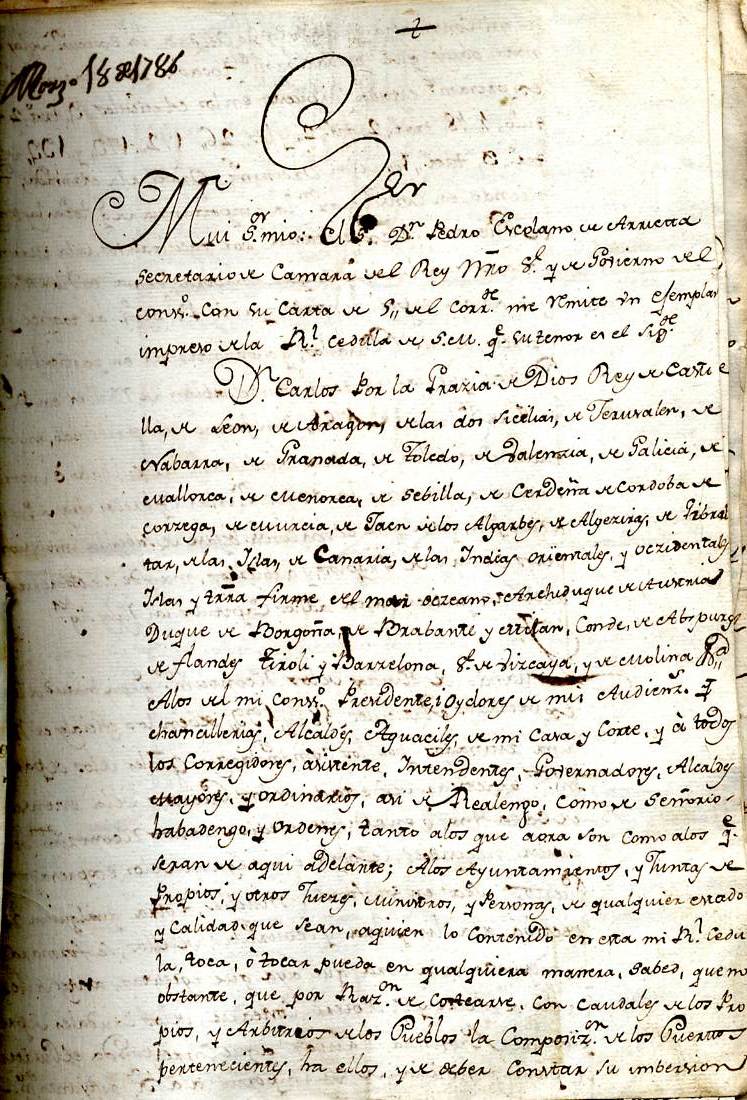 Marzo 18 de 1786
Ser
Mui S.or mio: El S.r D.n Pedro Escolano de Arrieta
Secretario de Camara del Rey Nr̃o S.r y de Govierno del
cons.o con su Carta de 5,, del corr.te me remite un exemplar
impreso de la R.l Cedula de S.M. q.e su tenor es el sig.te
D.n Carlos por la Grazia de Dios Rey de Casti
lla, de Leon, de Aragon, de las dos Sicilias, de Jerusalen, de
Nabarra, de Granada, de Toledo, de Valencia, de Galicia, de
Mallorca, de Menorca, de Sebilla, de Cerdeña de Cordoba de
Corzega, de Murcia, de Jaen de los Algarbes, de Algeziras, de Gibral
tar, de las Islas, de Canaria, de las Indias orientales, y oczidentales
Islas y trr̃a firme del mar oczeano, Archiduque de Austria
Duque de Borgoña, de Brabante y Milan, Conde, de Abspurg
de flandes Tiroli y Barzelona, S.r de Vizcaya, y de Molina &a
Alos del mi cons.o Presidente, i Oydores de mis Audienz.s y
chancillerias, Alcaldes, Aguaciles, de mi Casa y Corte, y à todos
los Corregidores, asistente, Intendentes, Governadores, Alcaldes
Mayores, y ordinarios, asi de Realengo, como de Señorio
habadengo, y ordenes, tanto alos que aora son como alos q.e
seran de aqui adelante; Alos Ayuntamientos, y Juntas de
Propios, y otros Juezes, Ministros, y Personas, de qualquier estado
y Calidad que sean, aquien lo contenido en esta mi R.l Cedu
la, toca, ò tocar pueda en qualquiera manera, Sabed, que no
obstante, que por Raz.on de costearse, con caudales de los Pro
pios, y Arbitrios de los Pueblos la Composiz.on de los Puertos
pertenecientes, ha ellos, y de deber Constar su imbersion